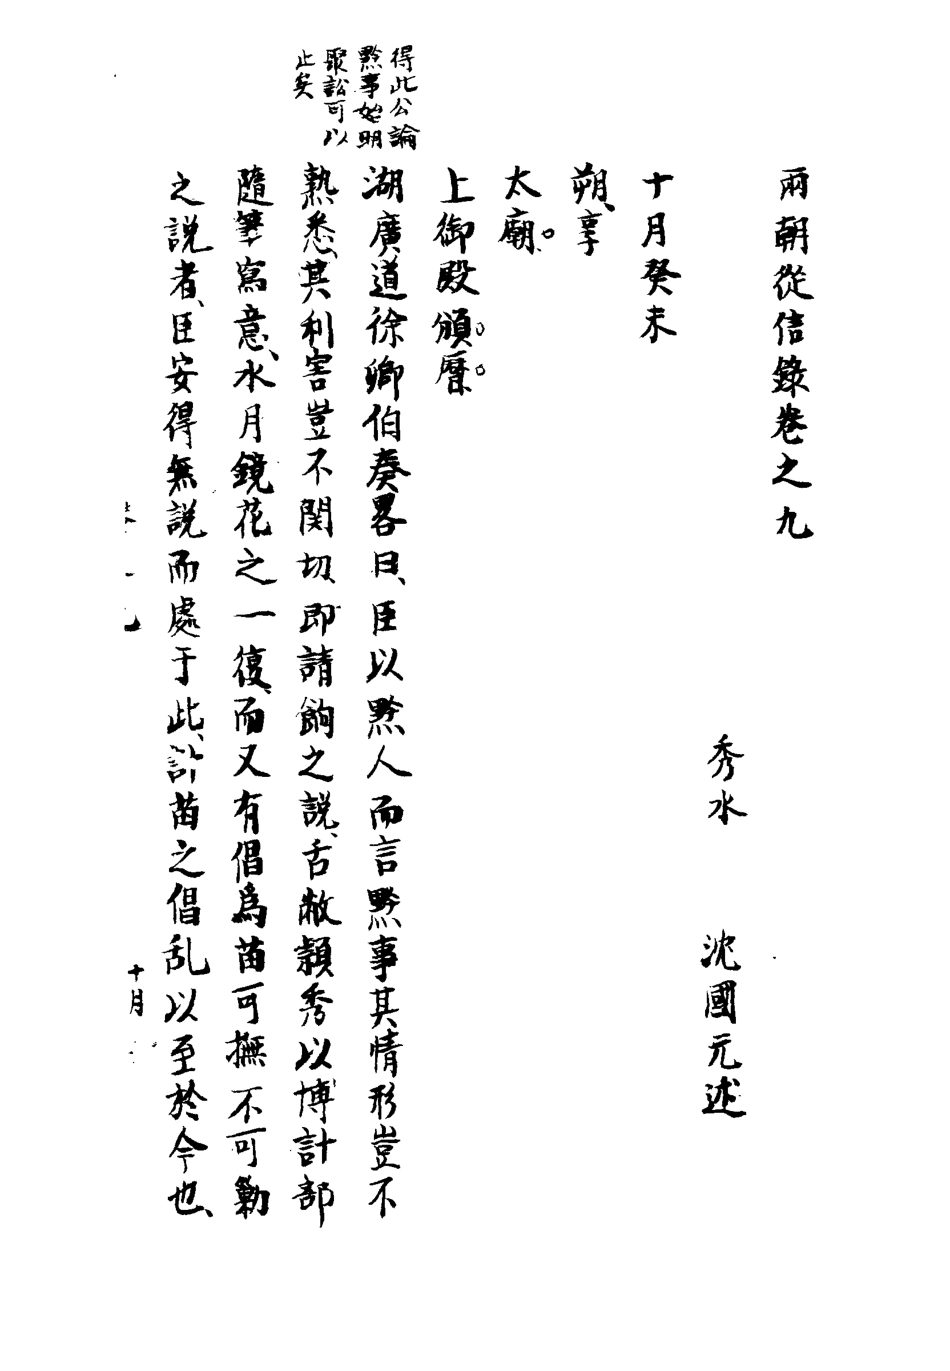 兩朝從信錄卷之九
秀水　沈國元述
十月癸未
朔、享
太廟。
上御殿頒。曆。
得此公論
黔事始明
聚訟可以
止矣
湖廣道徐卿伯奏畧曰、臣以黔人而言黔事其情形豈不
熟悉、其利害豈不関切、即請餉之說、舌敝穎秀以博計部
隨筆寫意、水月鏡花之一復、而又有倡為苗可撫不可勦
之說者、臣安得無說而處于此、計苗之倡乱以至於今也、
十月